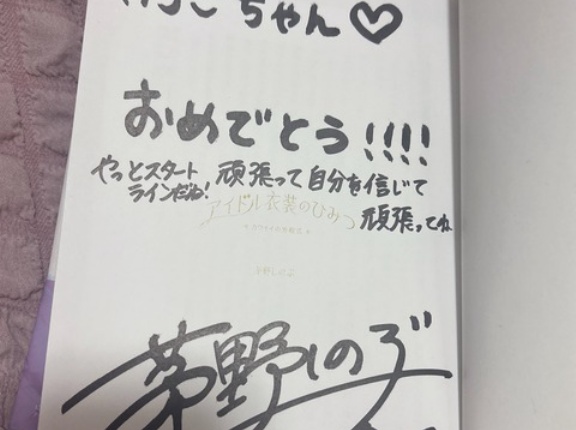 ちゃん♡
おめでとう!!!!
やっとスタート
ラインだね!
頑張って自分を信じて
頑張ってね
アイドル衣装のひみつ
茅野しのぶ
茅野しのぶ